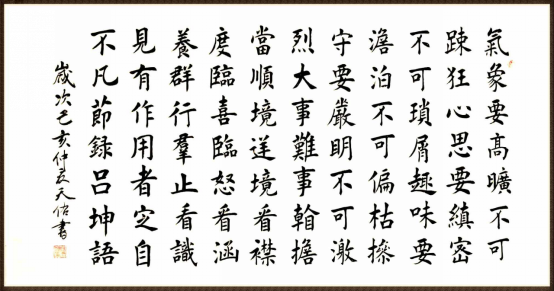 氣象要高曠不可
踈狂心思要縝密
不可瑣屑趣味要
澹泊不可偏枯操
守要嚴明不可激
烈大事難事擔
當順境逆境看襟
度臨喜臨怒看涵
養群行羣止看識
見有作用者定自
不凡節録呂坤語
歲次己亥仲夏天佑書